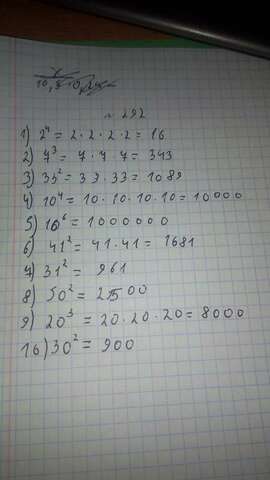 № 292
1) 2⁴ = 2 · 2 · 2 · 2 = 16
2) 7³ = 7 · 7 · 7 = 343
3) 33² = 33 · 33 = 1089
4) 10⁴ = 10 · 10 · 10 · 10 = 10000
5) 10⁶ = 1000000
6) 41² = 41 · 41 = 1681
7) 31² = 961
8) 50² = 2500
9) 20³ = 20 · 20 · 20 = 8000
10) 30² = 900